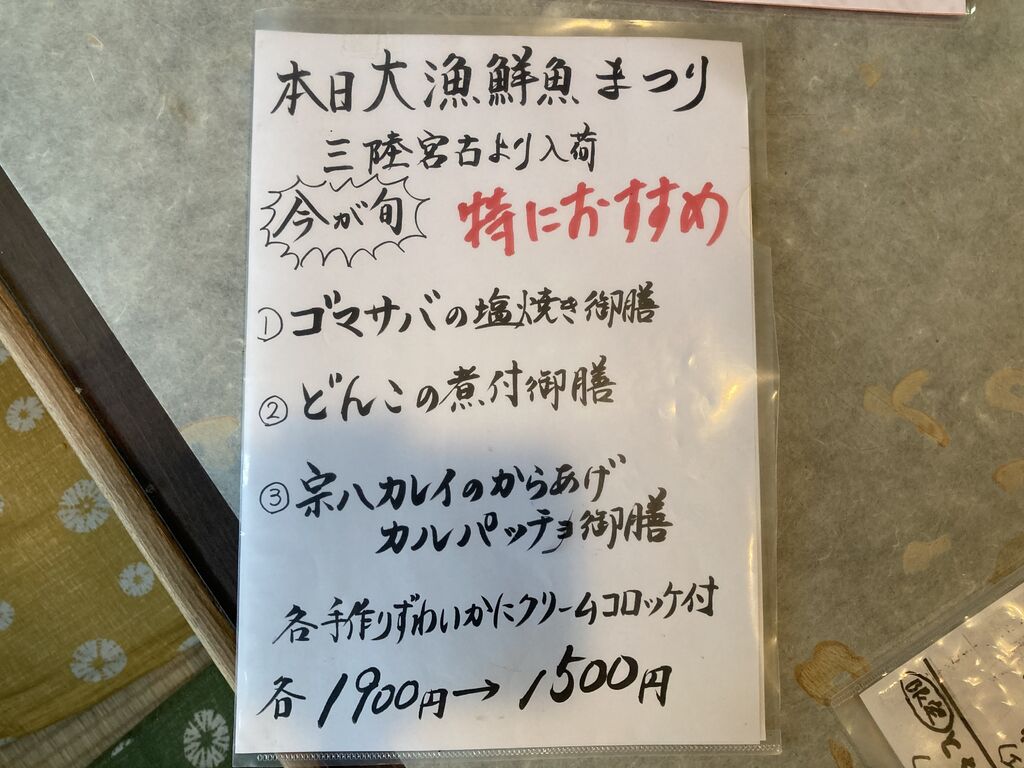 本日大漁鮮魚まつり
三陸宮古より入荷
今が旬 特におすすめ
① ゴマサバの塩焼き御膳
② どんこの煮付御膳
③ 宗八カレイのからあげ
カルパッチョ御膳
各手作りずわいかにクリームコロッケ付
各1900円→1500円
限定